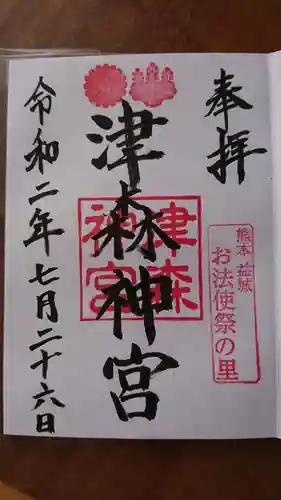 奉拝
熊本 益城
お法使祭の里
津森神宮
津森
神宮
令和二年七月二十六日